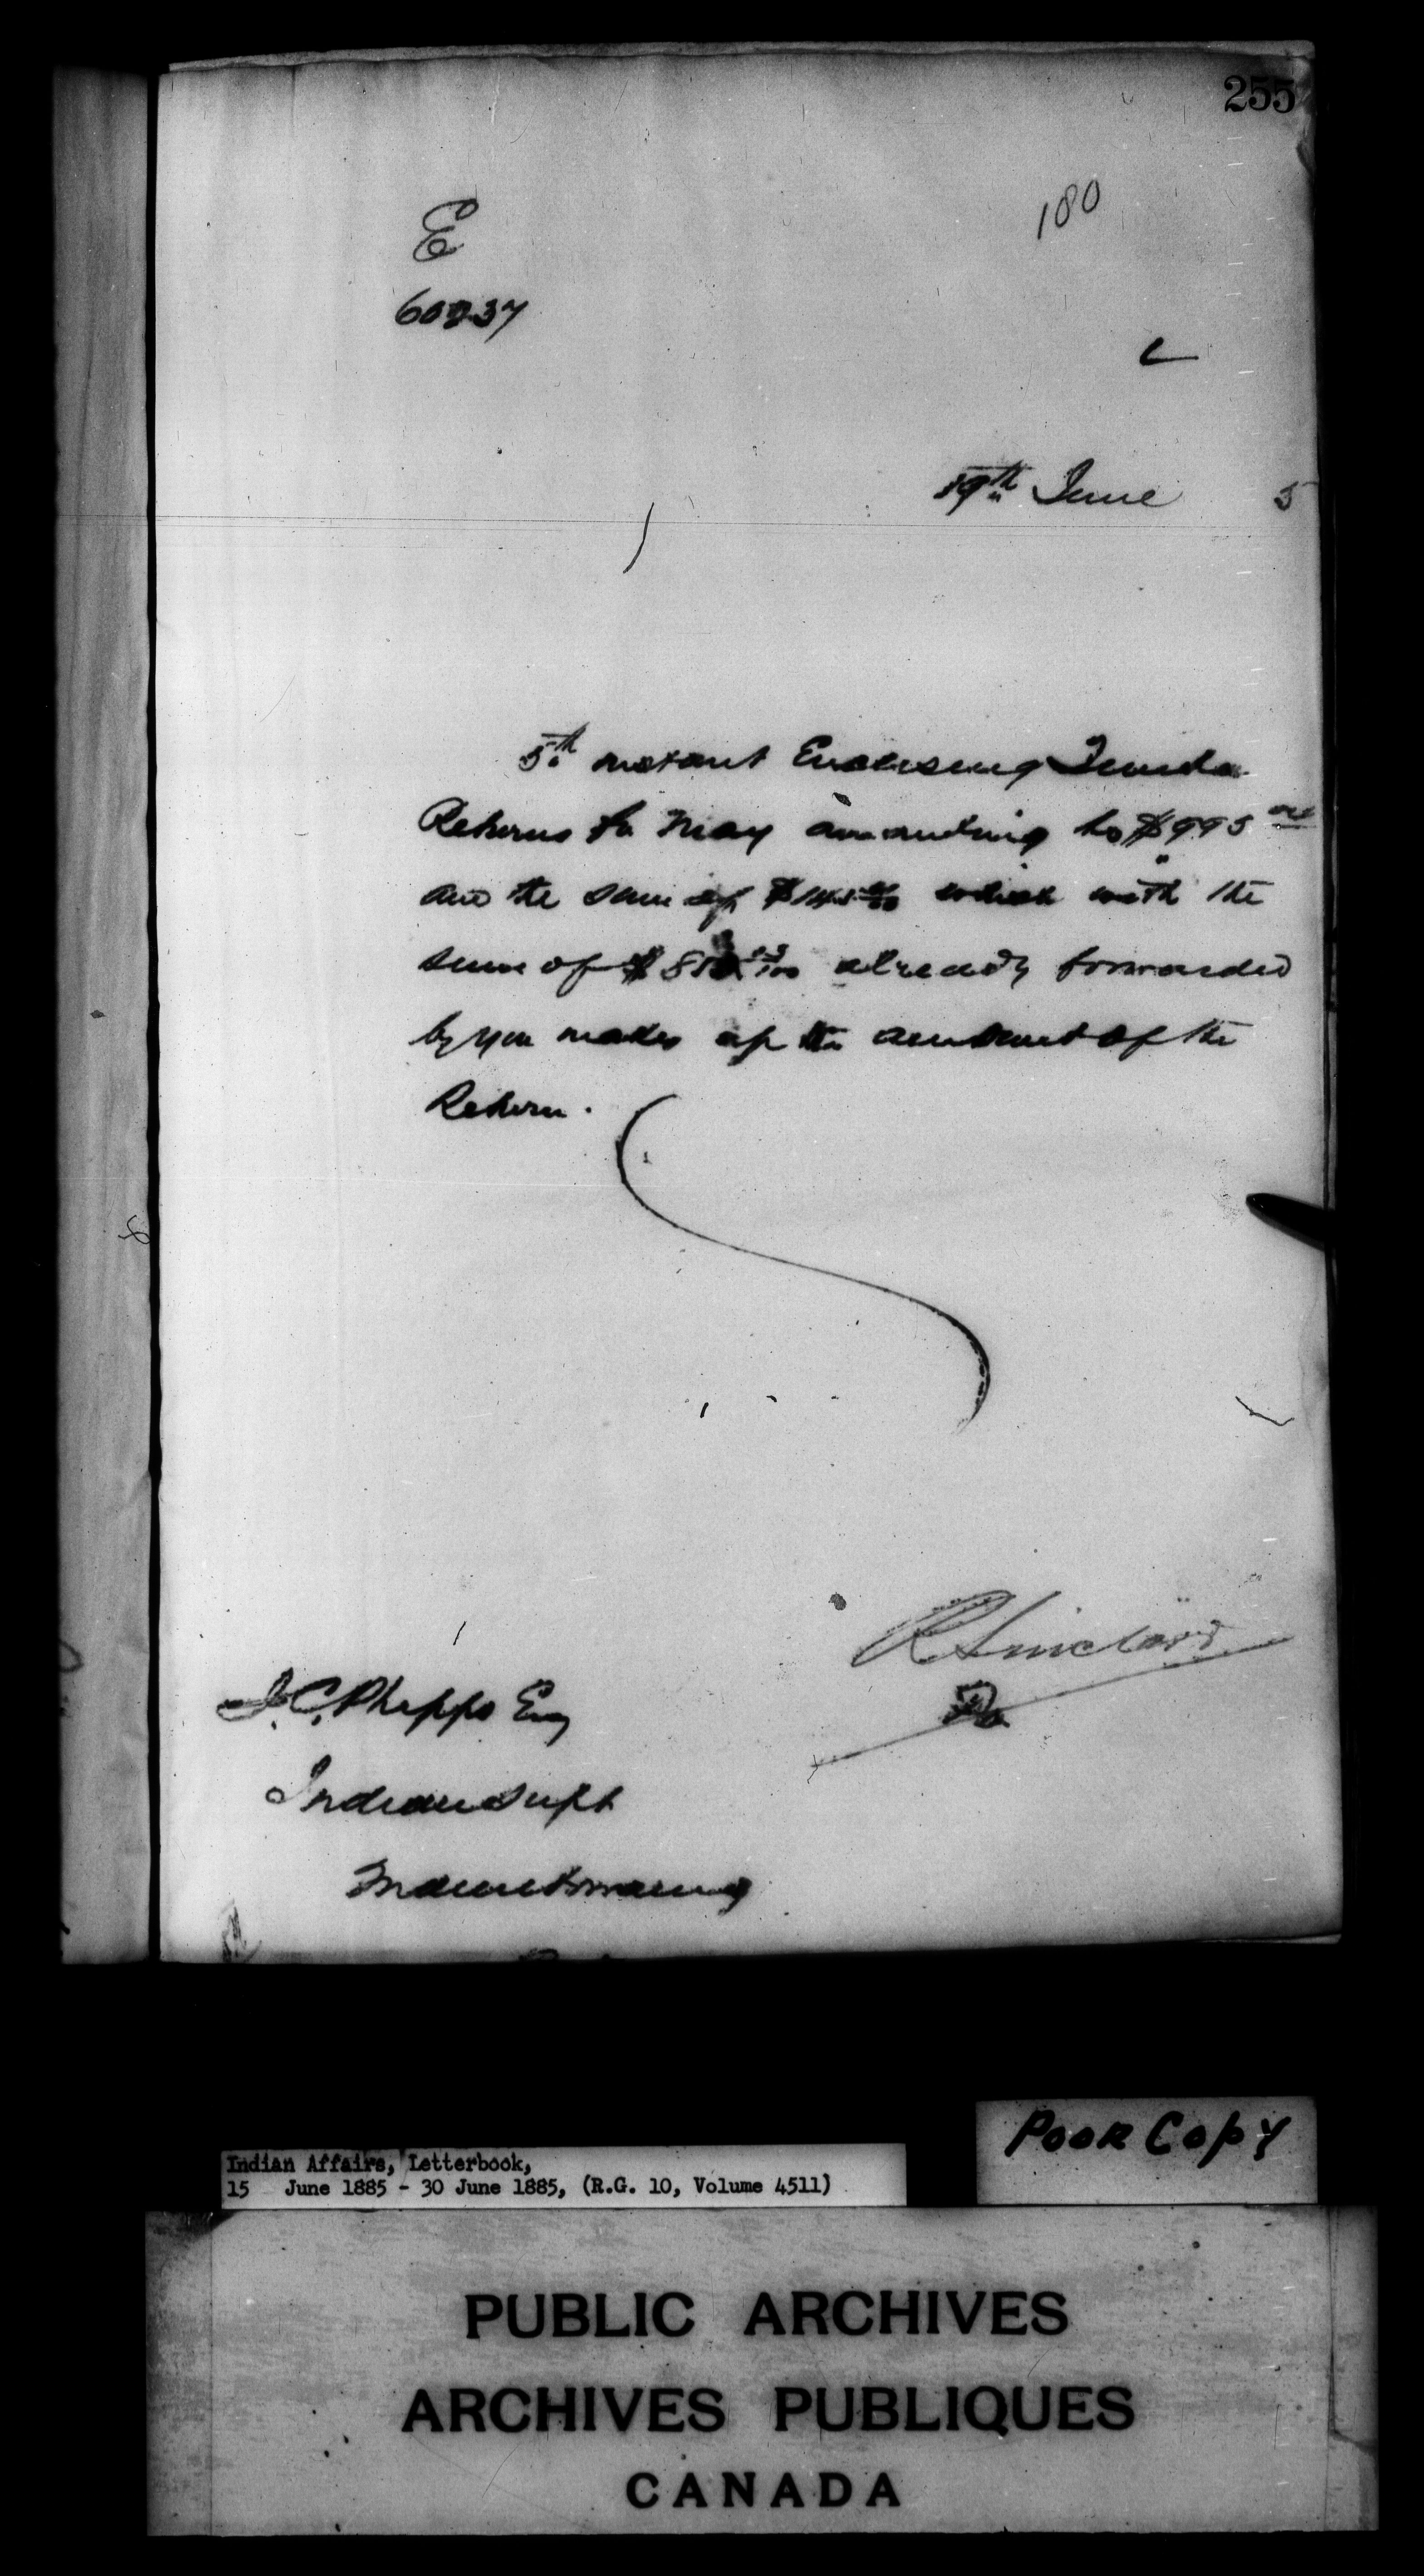 255
180
E
60237
19th June 5
5th instant Enclosing
Returns for May amounting to $995
and the sum of which with the
sum of already forwarded
by you makes up the amount of the
Return.
R Sinclair
J. C. Phipps Esq
Indian Supt
Manitowaning
Poor Copy
Indian Affairs, Letterbook,
15 June 1885 - 30 June 1885, (R.G. 10, Volume 4511)
PUBLIC ARCHIVES
ARCHIVES PUBLIQUES
CANADA